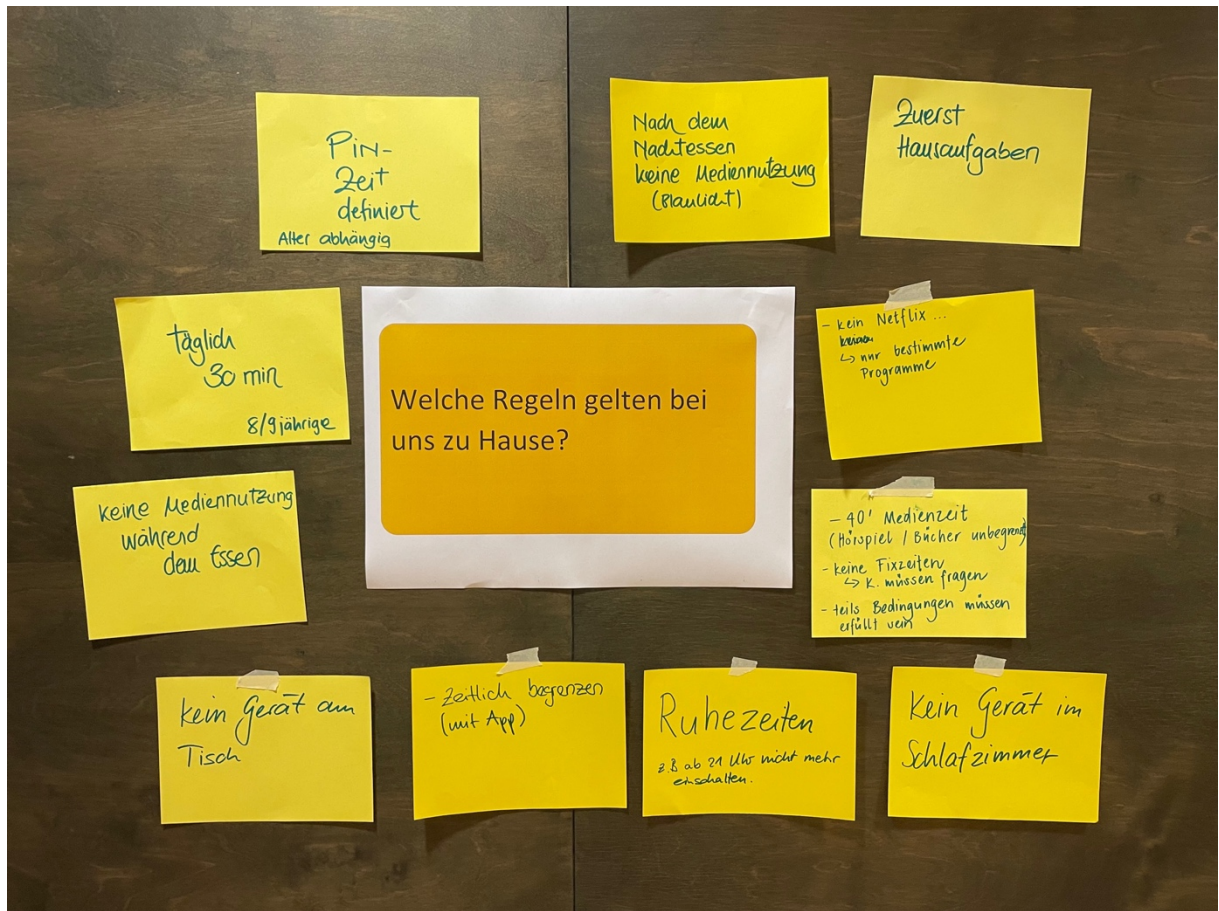 Pin-
Zeit
definiert
Alter abhängig
Nach dem
Nachtessen
keine Mediennutzung
(Blaulicht)
Zuerst
Hausaufgaben
täglich
30 min
8/9 jährige
Welche Regeln gelten bei
uns zu Hause?
- kein Netflix ...
↳ nur bestimmte
Programme
keine Mediennutzung
während
dem Essen
- 40' Medienzeit
(Hörspiel / Bücher unbegrenzt)
- keine Fixzeiten
↳ K. müssen fragen
- teils Bedingungen müssen
erfüllt sein
kein Gerät am
Tisch
- Zeitlich begrenzen
(mit App)
Ruhezeiten
z.B ab 21 Uhr nicht mehr
einschalten.
Kein Gerät im
Schlafzimmer